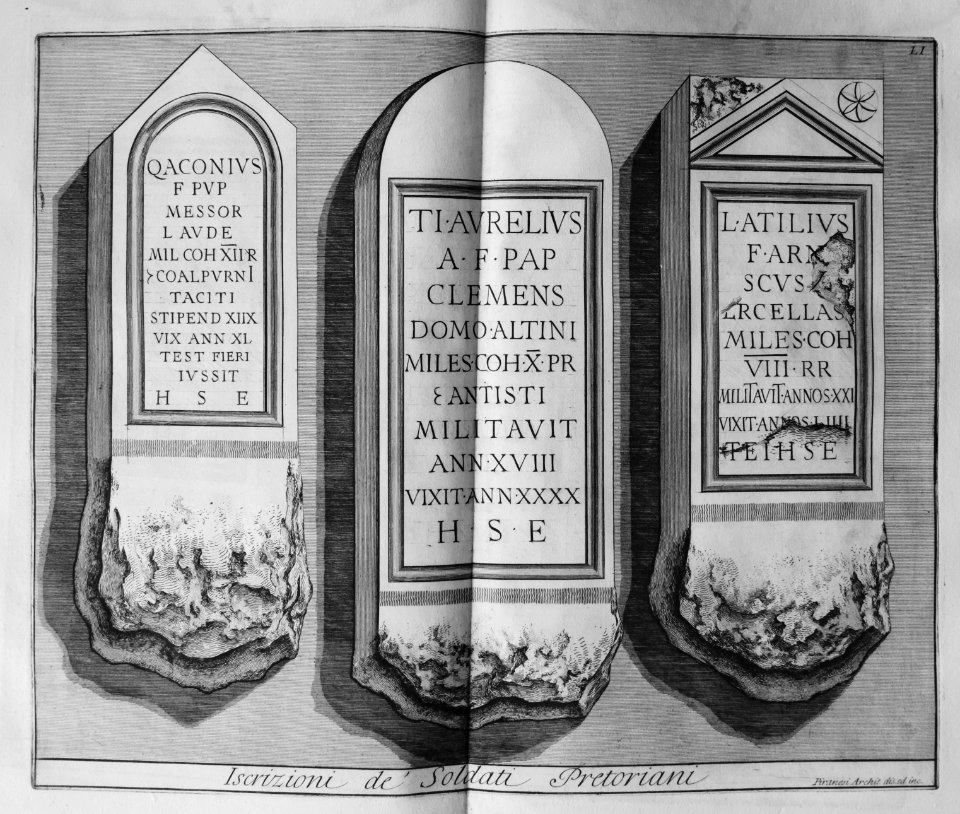 LI
QACONIVS
F PVP
MESSOR
LAVDE
MIL COH X̅I̅I̅ P R
COALPVRNI
TACITI
STIPEND XIIX
VIX ANN XL
TEST FIERI
IVSSIT
H S E
TI·AVRELIVS
A·F·PAP
CLEMENS
DOMO·ALTINI
MILES·COH·X̅·PR
ANTISTI
MILITAVIT
ANN·XVIII
VIXIT·ANN·XXXX
H·S·E
L·ATILIVS
F·ARN
SCVS
ERCELLAS
MILES·COH
V̅I̅I̅I̅·RR
MILITAVIT·ANNOS·XXI
VIXIT·ANNOS·LIIII
TEIHSE
Iscrizioni de' Soldati Pretoriani
Piranesi Archit. dis. ed inc.